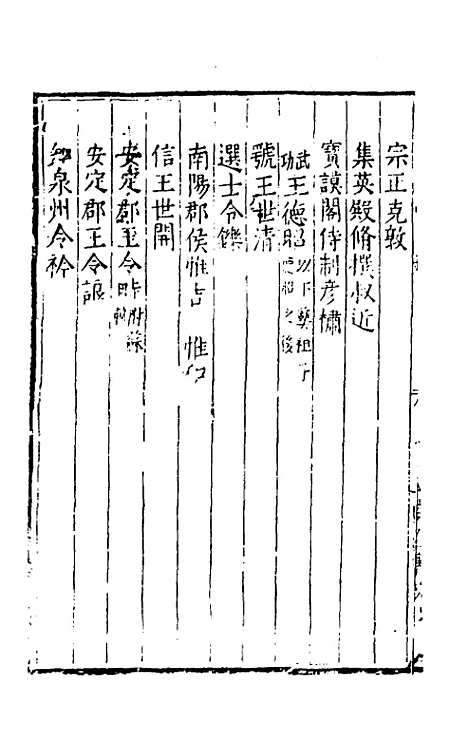 宗正克敦
集英殿脩撰叔近
寶謨閣待制彥橚
武功王德昭以下藝祖子德昭之後
虢王世清
選士令鑠
南陽郡侯惟吉 惟
信王世開
安定郡王令畤附蘇
安定郡王令詪
知泉州令衿